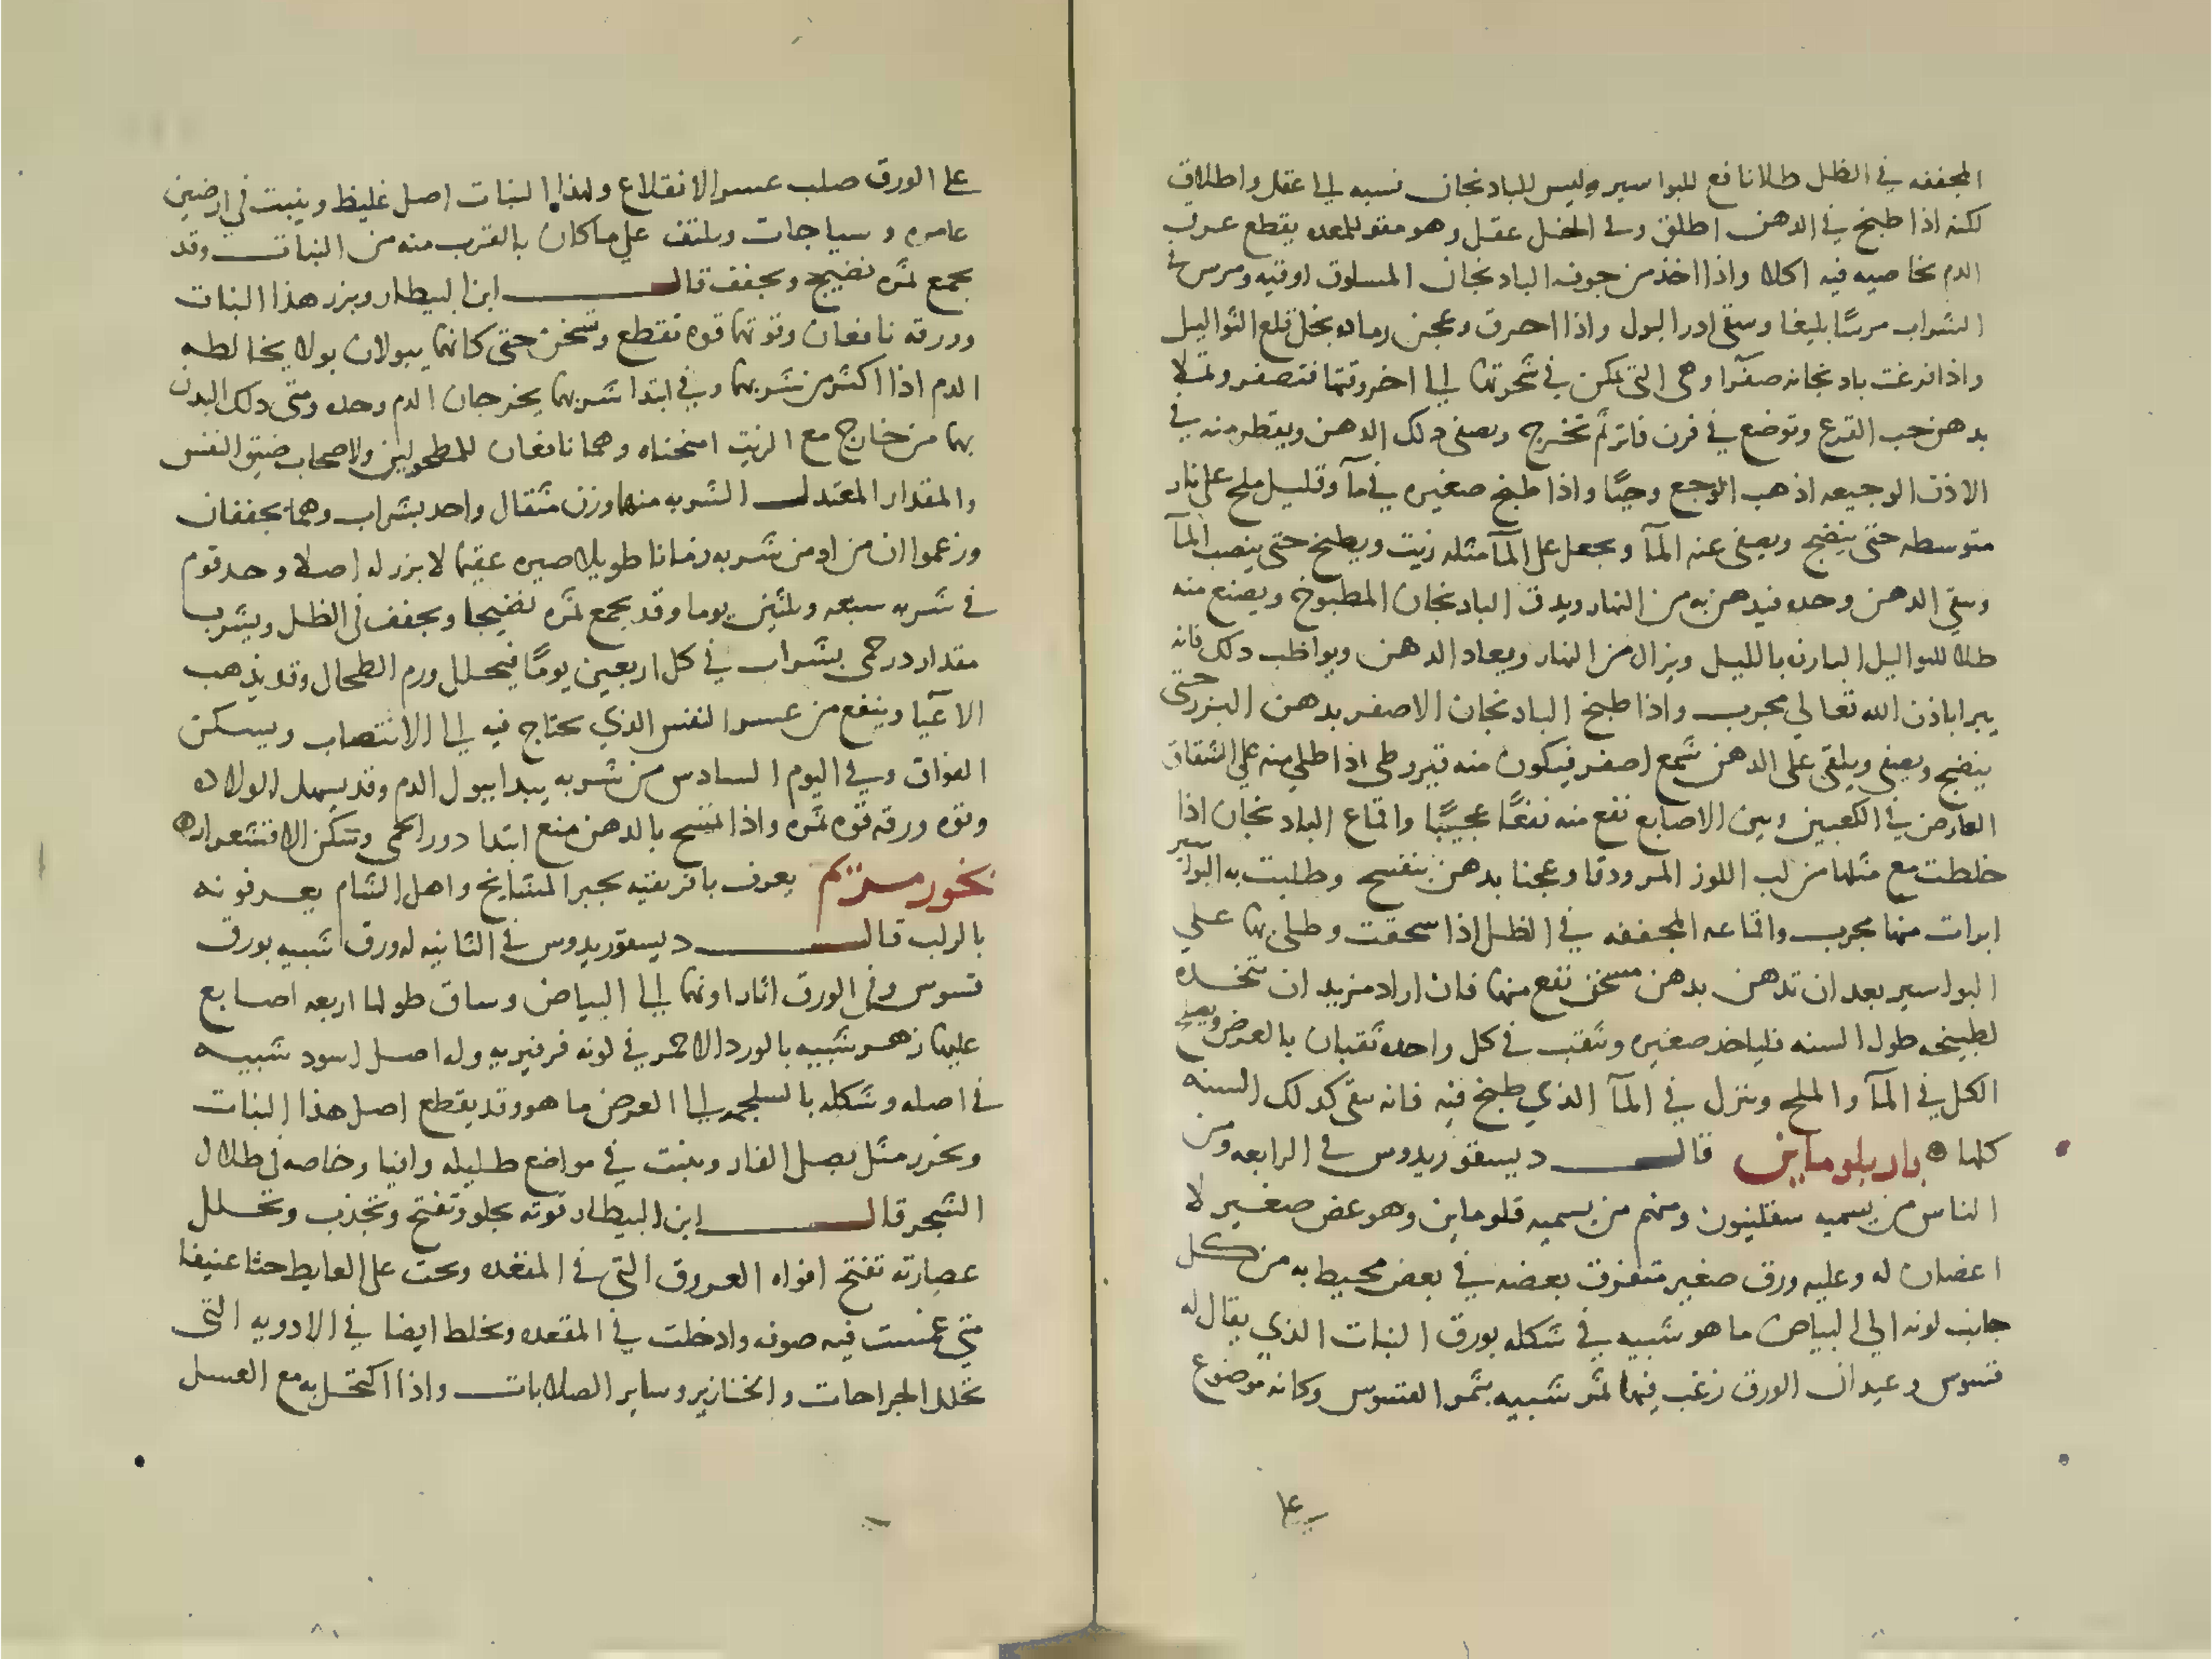 المجففه في الظل طلا نافع للبواسير وليس للبادنجان نسبه لى عقل واطلاق
لكنه اذا طبخ في الدهن اطلق وفى الخل عقل وهو مقو للمعده يقطع عرق
الدم بخاصيه فيه اكلا واذا اخذ من جوف البادنجان المسلوق اوقيه ومرس في
الشراب مرسًا بليغا وسقى ادر البول واذا احرق وعجن رماده بخل قلع الثواليل
واذا فرغت بادنجانه صفرآ وهى التي تمكن في شجرتها لى اخر وقتها فتصفر وتملا
بدهن حب القرع وتوضع في فرن فاتر ثم تخرج ويصفى دلك الدهن ويقطر منه في
الاذن الوجيعه اذهب الوجع وحيًا واذا طبخ صغيره في مآ وقليل ملح على نار
متوسطه حتى ينضج ويصفى عنه المآ ويجعل على المآ مثله زيت ويطبخ حتى ينصب المآ
وبقي الدهن وحده فيدهن به من النهار ويدق البادنجان المطبوخ ويصنع منه
طلا للثواليل البارزه بالليل ويزال من النهار ويعاد الدهن ويواظب دلك فانه
يبرا باذن الله تعالي مجرب واذا طبخ البادنجان الاصفر بدهن البزر حتى
ينضج ويصفى ويلقى على الدهن شمع اصفر فيكون منه قيروطى اذا طلي منه على الشقاق
العارض في الكعبين وبين الاصابع نفع منه نفعًا عجيبًا واقماع البادنجان اذا
خلطت مع مثلها من لب اللوز المر ودقا وعجنا بدهن بنفسج وطليت به البواسير
ابرات منها مجرب واقماعه المجففه في الظل اذا سحقت وطلى بها علي
البواسير بعد ان تدهن بدهن مسخن نفع منها فان اراد مريد ان تتخذه
لطبيخه طول السنه فلياخد صغيره وتثقب في كل واحده ثقبان بالعرض ويصير
الكل في المآ والملح وتنزل في المآ الذي طبخ فيه فانه يبقى كدلك السنه
كلها ه باريلوماين قال ديسقوريدوس في الرابعه ومن
الناس من يسميه سقلينيون ومنهم من يسميه قلوماين وهو غض صغير لا
اغصان له وعليه ورق صغير متفرق بعضه في بعض محيط به من كل
جانب لونه الي البياض ما هو شبيه في شكله بورق النبات الذي يقال له
قسوس وعيدان الورق زغب فيها ثمر شبيه بثمر القسوس وكانه موضوع
على
على الورق صلب عسر الانقلاع ولهذا النبات اصل غليظ وينبت في ارضين
عامره وسياجات ويلتف علي ماكان بالقرب منه من النبات وقد
يجمع ثمره نضيج ويجفف قال ابن البيطار وبزر هذا النبات
وورقه نافعان وقوتها قوه تقطع وتسخن حتى كانهما يبولان بولا يخالطه
الدم اذا اكثر من شربهما وفي ابتدا شربهما يخرجان الدم وحده ومتى دلك البدن
بهما من خارج مع الزيت اسخناه وهما نافعان للمطحولين ولاصحاب ضيق النفس
والمقدار المعتدل الشربه منهما وزن مثقال واحد بشراب وهما يجففان
وزعموا ان من ادمن شربه زمانا طويلا صيره عقيما لا بزر له اصلا وحد قوم
في شربه سبعه وثلثين يوما وقد يجمع ثمره نضيجا ويجفف في الظل ويشرب
مقدار درخمى بشراب في كل اربعين يومًا فيحلل ورم الطحال وقد يذهب
الاعيآ وينفع من عسر النفس الذي يحتاج فيه لى الانتصاب ويسكن
الفواق وفي اليوم السادس من شربه يبدا يبول الدم وقد يسهل الولاده
وقوه ورقه قوه ثمره واذا تمسح بالدهن منع ابتدا دور الحمى وتسكن الاقشعرار ه
بخور مريم يعرف بافريقيه بخبز المشايخ واهل الشام يعرفونه
بالركب قال ديسقوريدوس في الثانيه له ورق شبيه بورق
قسوس وفى الورق اثار اونها لى البياض وساق طولها اربعه اصابع
عليها زهر شبيه بالورد الاحمر في لونه فرفيريه وله اصل اسود شبيه
في اصله وشكله بالسلجم لى العرض ما هو وقد يقطع اصل هذا النبات
ويخزن مثل بصل الفار وينبت في مواضع ظليله وافيا وخاصه في ظلال
الشجر قال ابن البيطار قوته تجلو وتفتح وتجذب وتحلل
عصارته تفتح افواه العروق التي في المقعده وتحث على الغايط حثا عنيفا
متى غمست فيه صوفه وادخلت في المقعده وتخلط ايضا في الادويه التي
تحلل الجراحات والخنازير وساير الصلابات واذا اكتحل به مع العسل